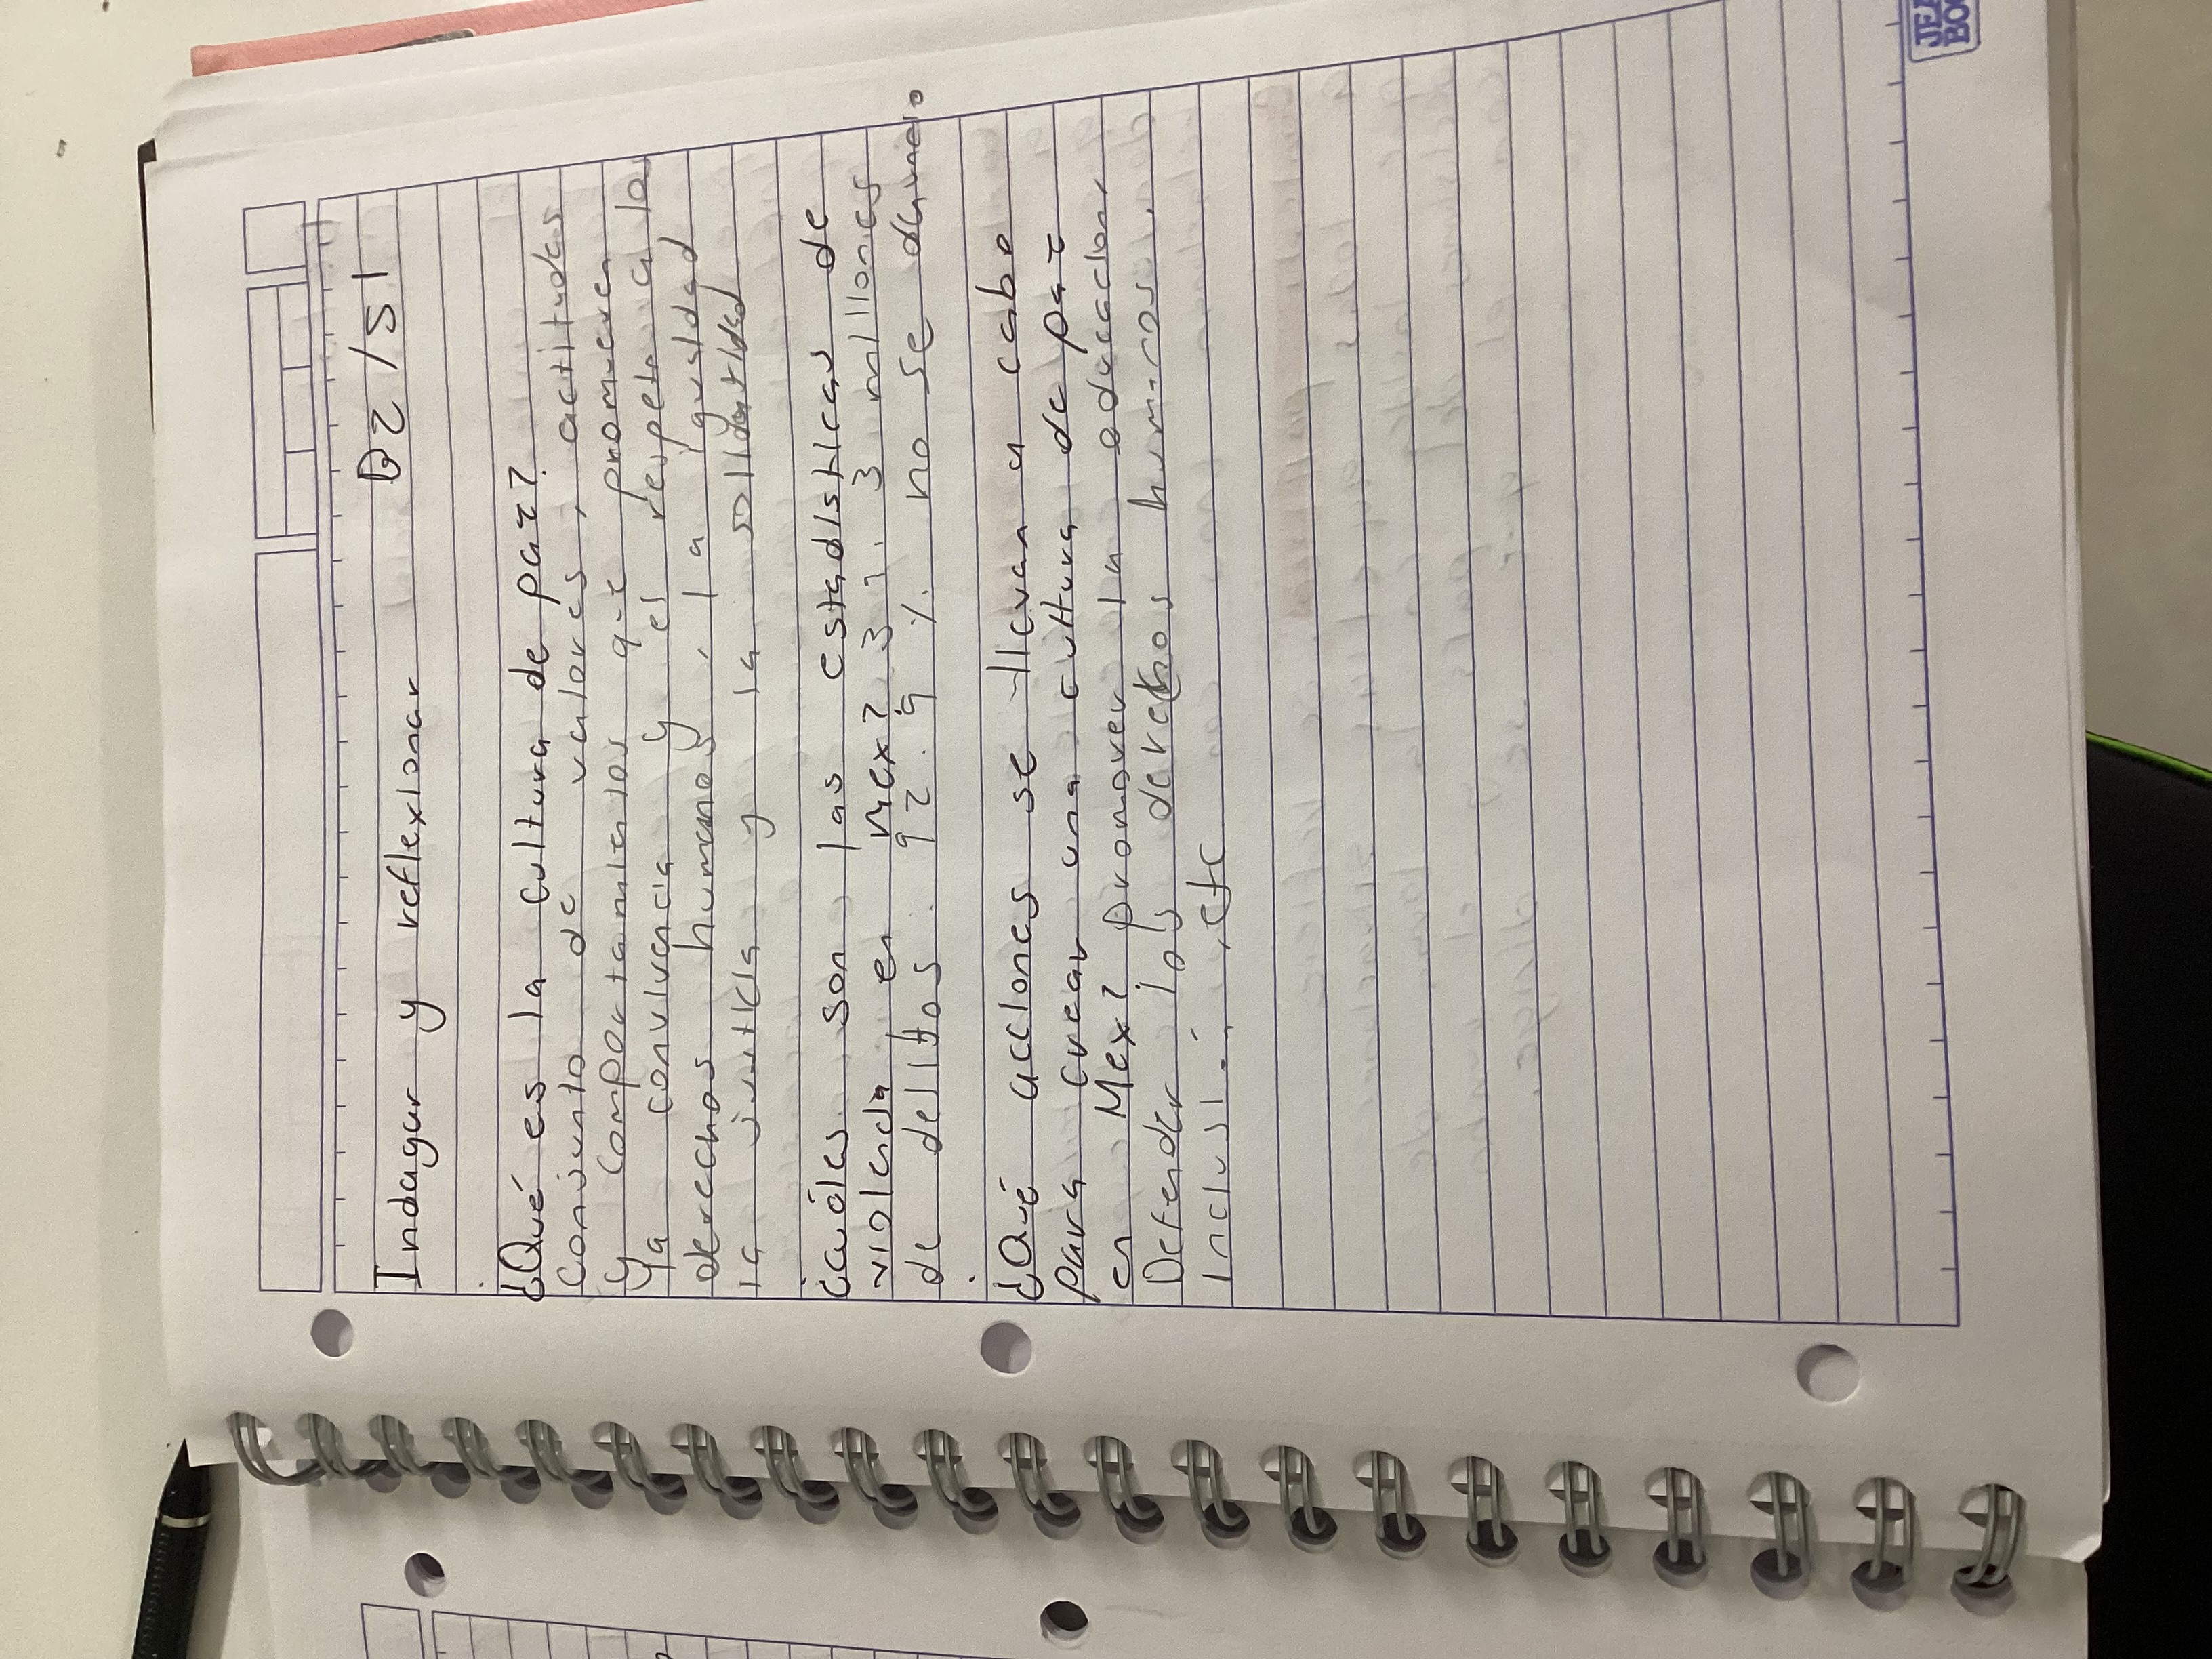 Indagar y reflexionar B2/S1
¿Qué es la cultura de paz?
Conjunto de valores, actitudes
y comportamientos que promueven
la convivencia y el respeto a lo
derechos humanos, la igualdad
la justicia y la solidaridad
¿cuáles son las estadísticas de
violencia en Mex? 33.3 millones
de delitos. 92.9 % no se
¿Qué acciones se llevan a cabo
para crear una cultura de paz
en Mex? promover la educacion,
Defender los derechos hum-nos,
, etc
JEA
BOO